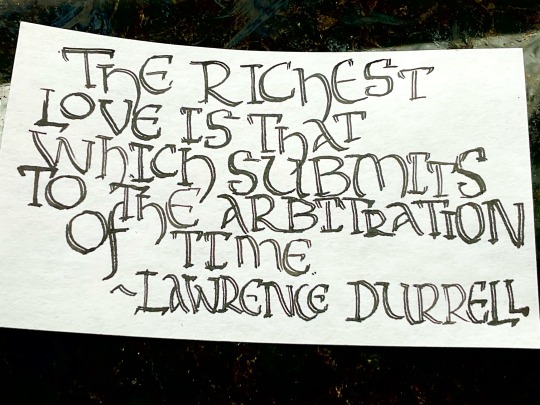 THE RICHEST
LOVE IS THAT
WHICH SUBMITS
TO THE ARBITRATION
OF TIME
~LAWRENCE DURRELL